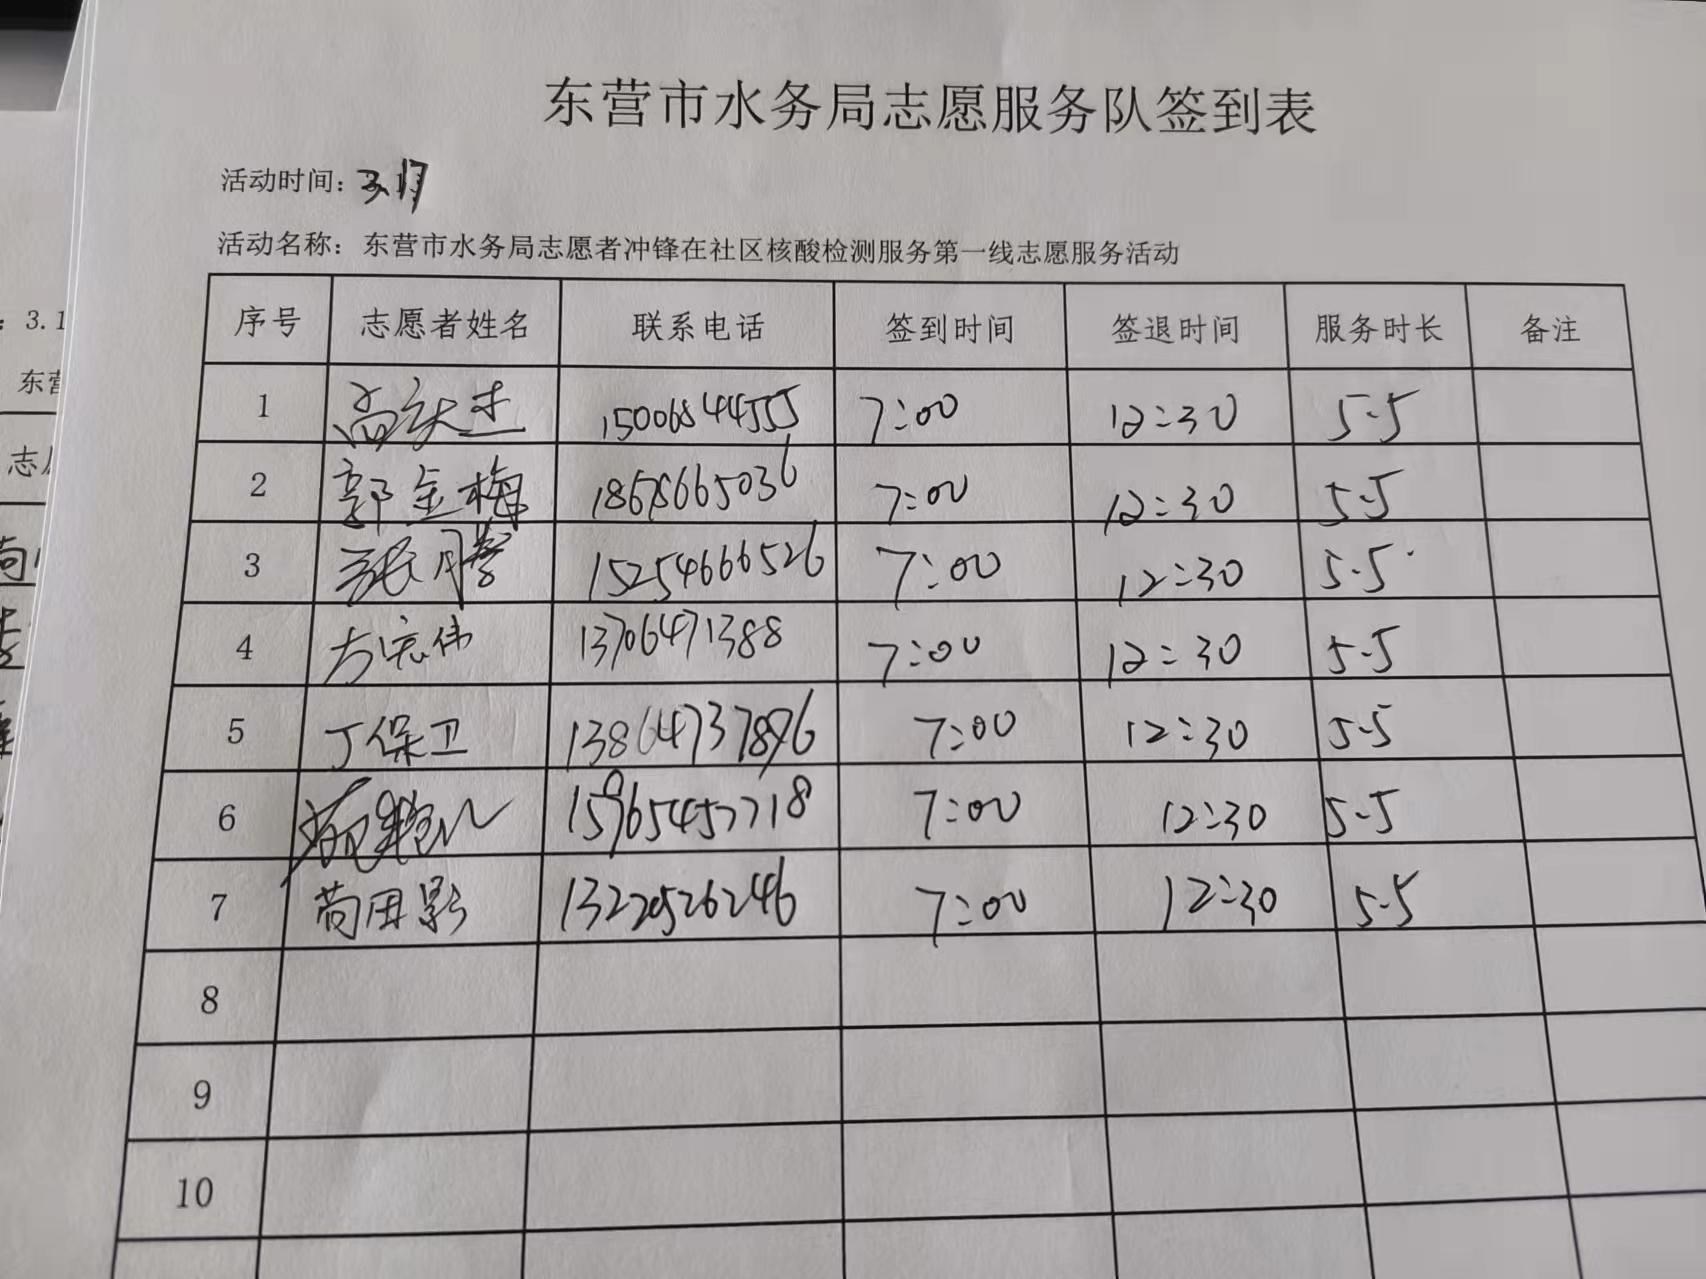 东营市水务局志愿服务队签到表
活动时间：3.17
活动名称：东营市水务局志愿者冲锋在社区核酸检测服务第一线志愿服务活动
序号 志愿者姓名 联系电话 签到时间 签退时间 服务时长 备注
1 15006844555 7:00 12:30 5.5
2 郭金梅 18678665036 7:00 12:30 5.5
3 张月 15254666526 7:00 12:30 5.5
4 方宏伟 13706471388 7:00 12:30 5.5
5 丁保卫 13864737896 7:00 12:30 5.5
6 7:00 12:30 5.5
7 13220526246 7:00 12:30 5.5
8
9
10
: 3.1
东营
志